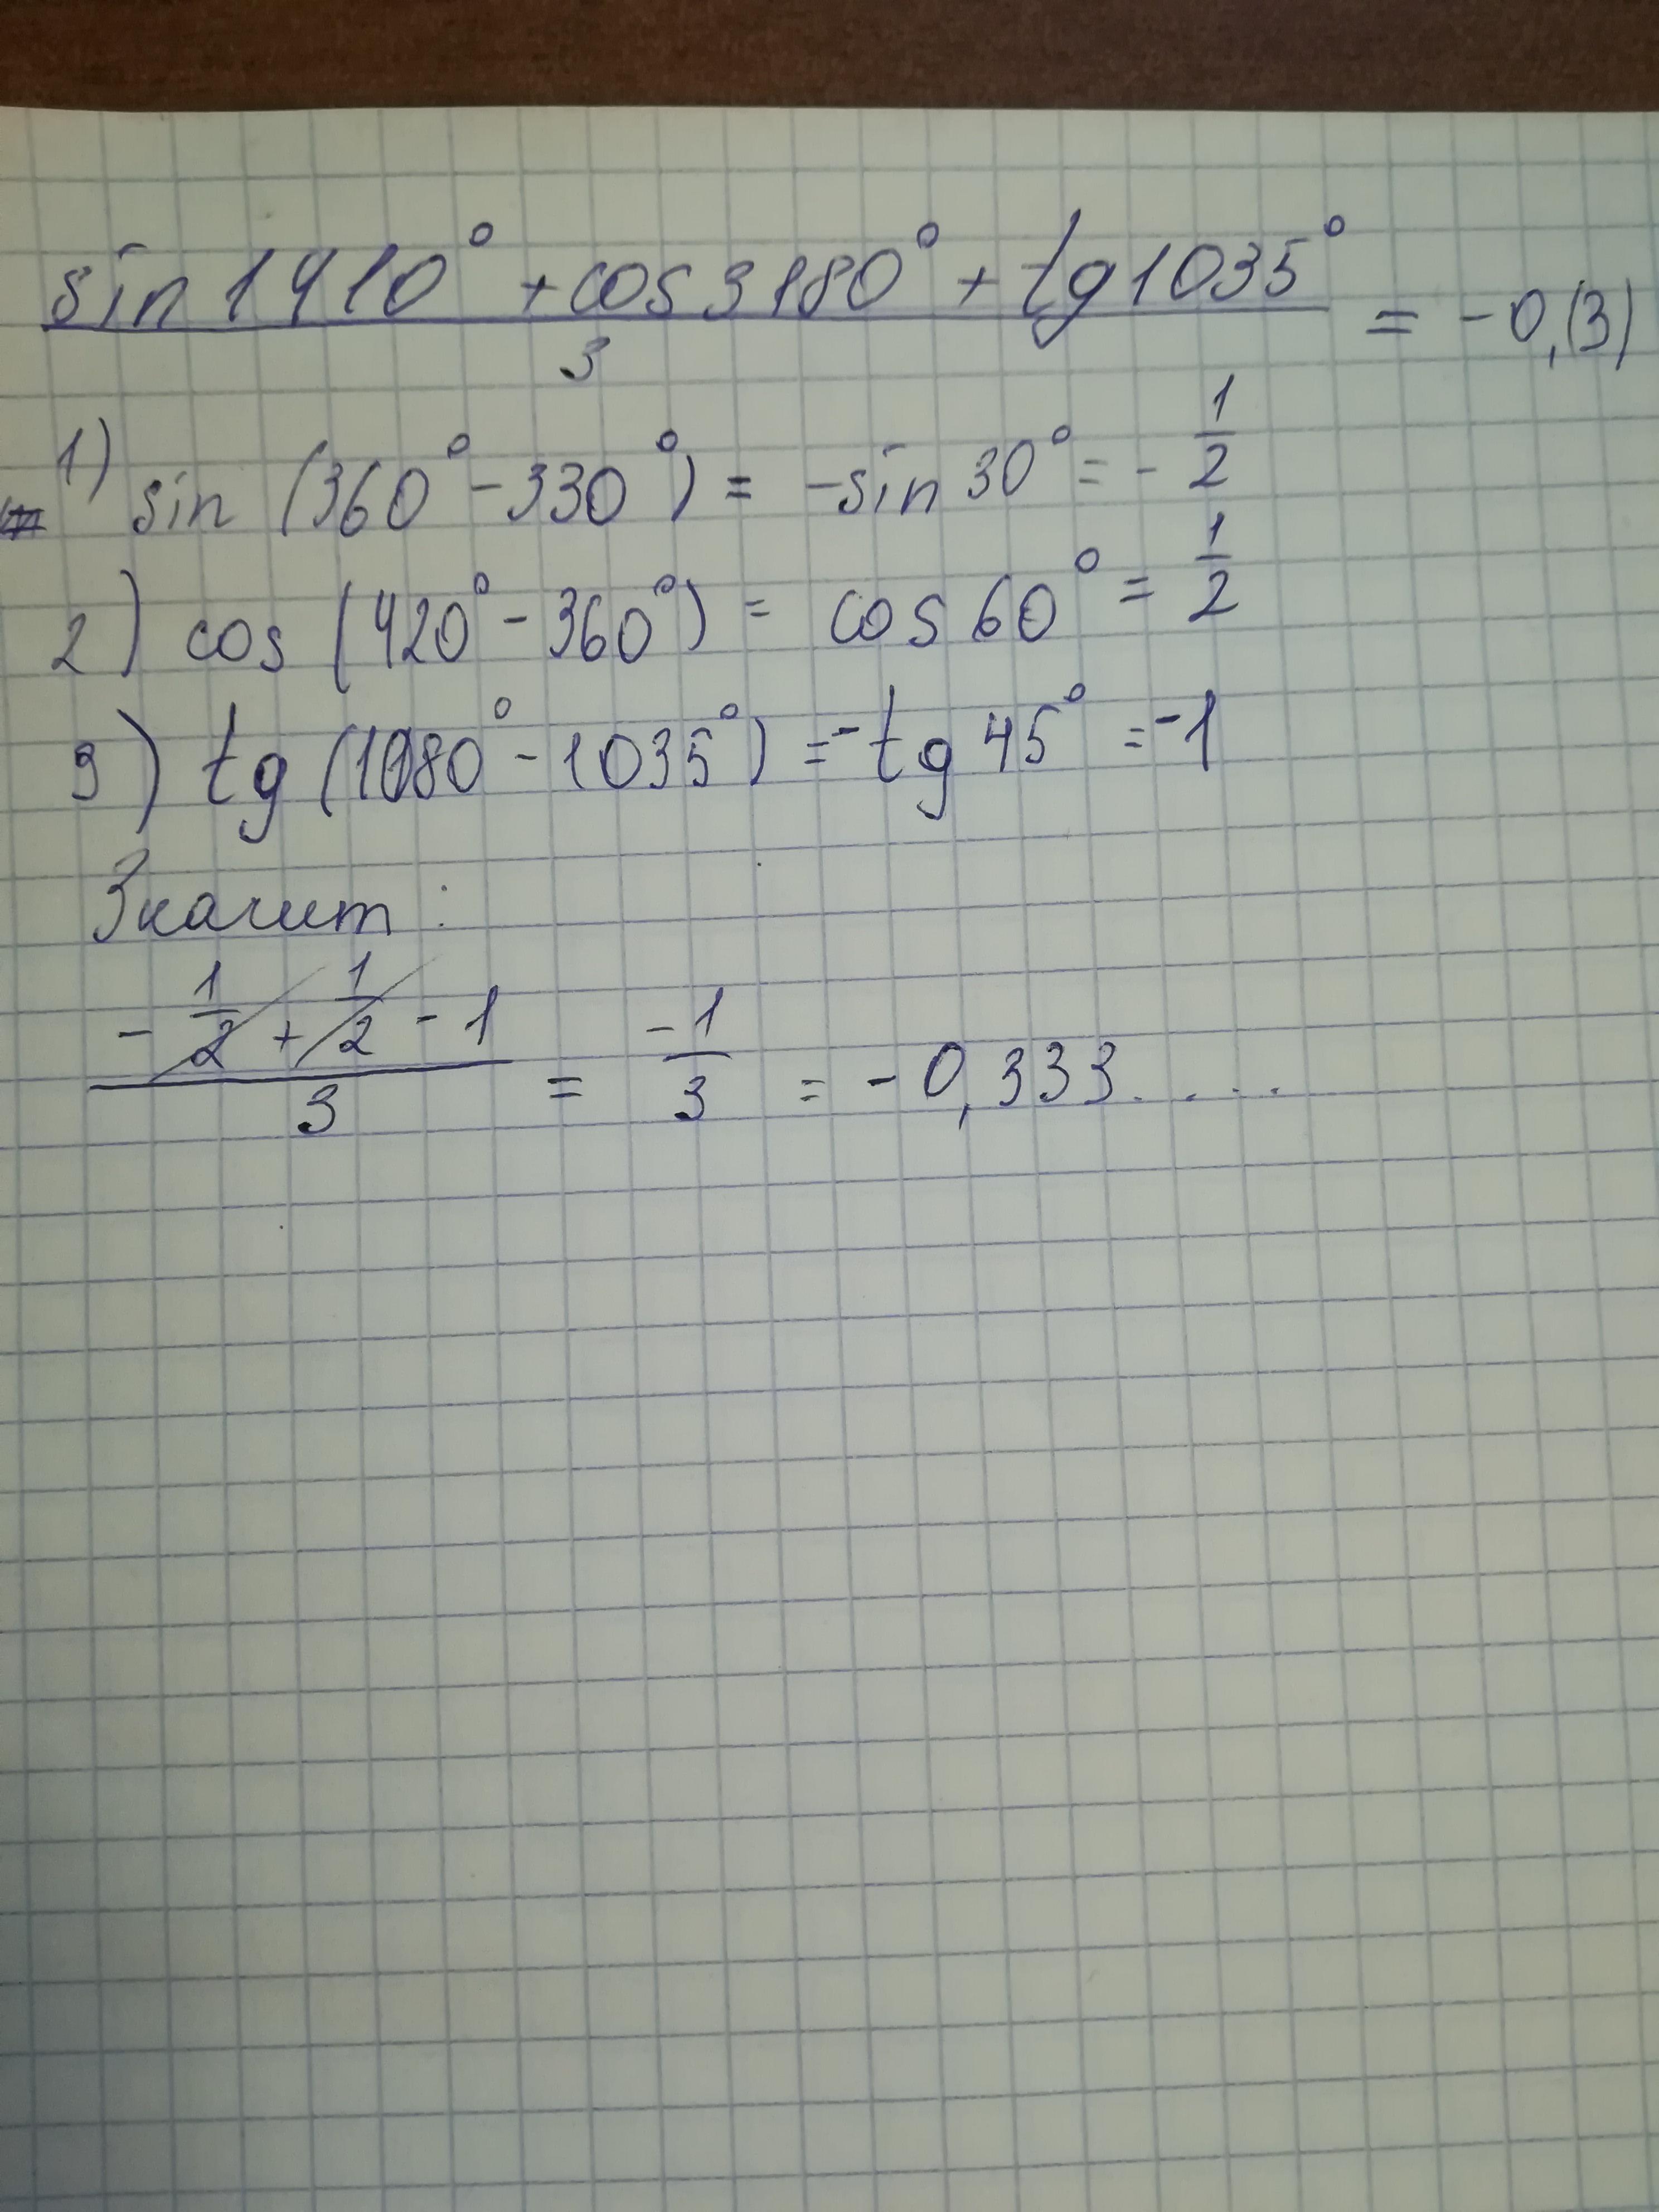 (sin 1410° + cos 3180° + tg 1035°) / 3 = -0,(3)
1) sin (360° - 330°) = -sin 30° = - 1/2
2) cos (420° - 360°) = cos 60° = 1/2
3) tg (1080° - 1035°) = -tg 45° = -1
Значит:
(- 1/2 + 1/2 - 1) / 3 = -1/3 = -0,333....